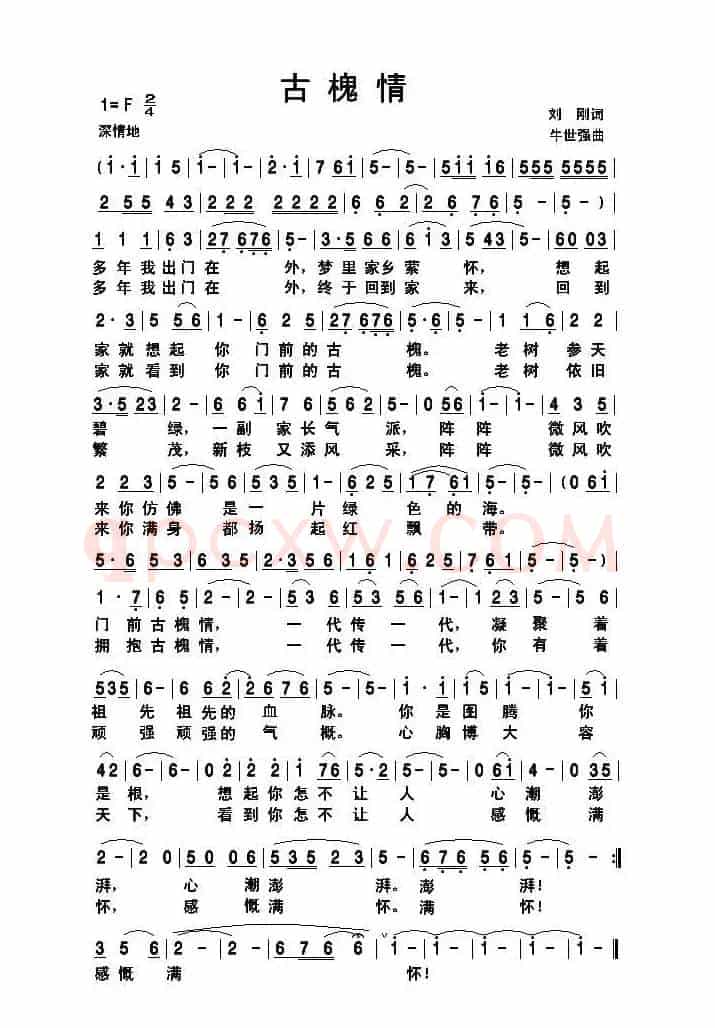 古槐情
1=F 2/4
深情地
刘 刚词
牛世强曲
(1·1|15|1-|1-|2·1|761|5-|5-|5111 16|555 5555|
2 55 43|222 2222|6 62|26 76|5-|5-)|
1 1 1|63|27 676|5-|3·5 66|613|543|5-|60 03|
多年我出门在 外,梦里家乡萦 怀, 想起
多年我出门在 外,终于回到家 来, 回到
2·3|5 56|1-|6 25|27 676|5·6|5-|1 16|22|
家就想起 你 门前的古 槐。 老树参天
家就看到 你 门前的古 槐。 老树依旧
3·5 23|2-|6 61|76|562|5-|0 56|1-|1-|4 35|
碧 绿,一副家长气 派,阵阵 微风吹
繁 茂,新枝又添风 采,阵阵 微风吹
2 23|5-|56|535|1-|625|17 61|5-|5-|(0 61|
来你仿佛 是一 片绿 色的海。
来你满身 都扬 起红 飘 带。
5·6 53|63 56|2·3 56|161|625|761|5-|5-)|
1·7|65|2-|2-|536|53 56|1-|1 23|5-|
门前古槐情, 一代传一代,凝聚着
拥抱古槐情, 一代传一代,你有着
535|6-|6 62|26 76|5-|5-|1·1|15|1·1|
祖先祖先的血 脉。 你是图腾你
顽强顽强的气 概。 心胸博大 容
42|6-|6-|02|22|1 76|5·2|5-|0 61|4-|0 35|
是根, 想起你怎不让人 心潮澎
天下, 看到你怎不让人 感慨满
2-|20|50 06|535 23|5-|676 56|5-|5-:|
湃, 心 潮澎 湃。澎 湃!
怀, 感 慨满 怀。满 怀!
356|2-|2-|676 6|1-|1-|1-|10‖
感慨满 怀!
qpcxw.COM